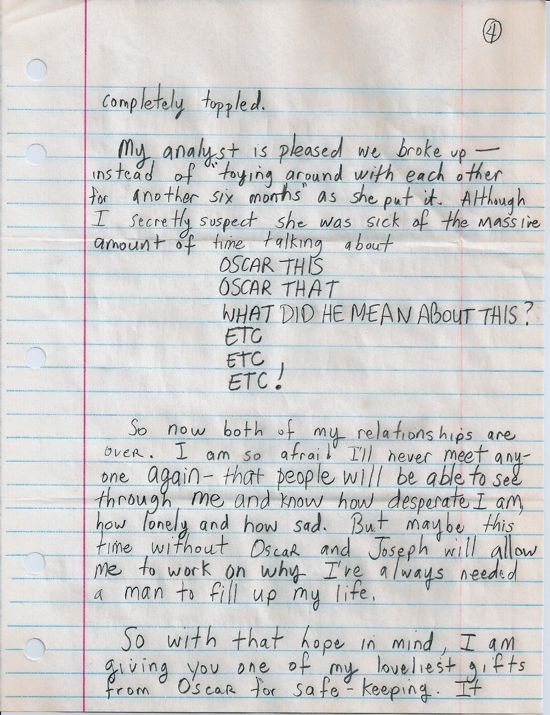 4
completely toppled.
My analyst is pleased we broke up —
instead of "toying around with each other
for another six months" as she put it. Although
I secretly suspect she was sick of the massive
amount of time talking about
OSCAR THIS
OSCAR THAT
WHAT DID HE MEAN ABOUT THIS?
ETC
ETC
ETC!
So now both of my relationships are
over. I am so afraid I'll never meet any-
one again - that people will be able to see
through me and know how desperate I am,
how lonely and how sad. But maybe this
time without Oscar and Joseph will allow
me to work on why I've always needed
a man to fill up my life.
So with that hope in mind, I am
giving you one of my loveliest gifts
from Oscar for safe-keeping. It